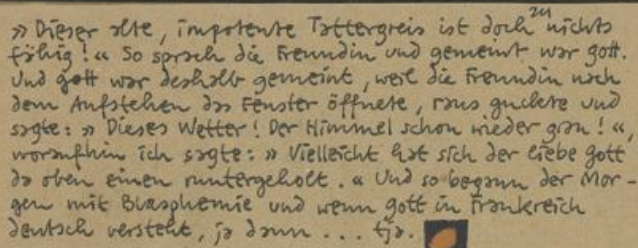 » Dieser alte, impotente Tattergreis ist doch zu nichts
fähig!« So sprach die Freundin und gemeint war Gott.
Und Gott war deshalb gemeint, weil die Freundin nach
dem Aufstehen das Fenster öffnete, raus guckte und
sagte: » Dieses Wetter! Der Himmel schon wieder grau!«,
woraufhin ich sagte: » Vielleicht hat sich der liebe Gott
da oben einen runtergeholt.« Und so begann der Mor-
gen mit Blasphemie und wenn Gott in Frankreich
deutsch versteht, ja dann ... tja.